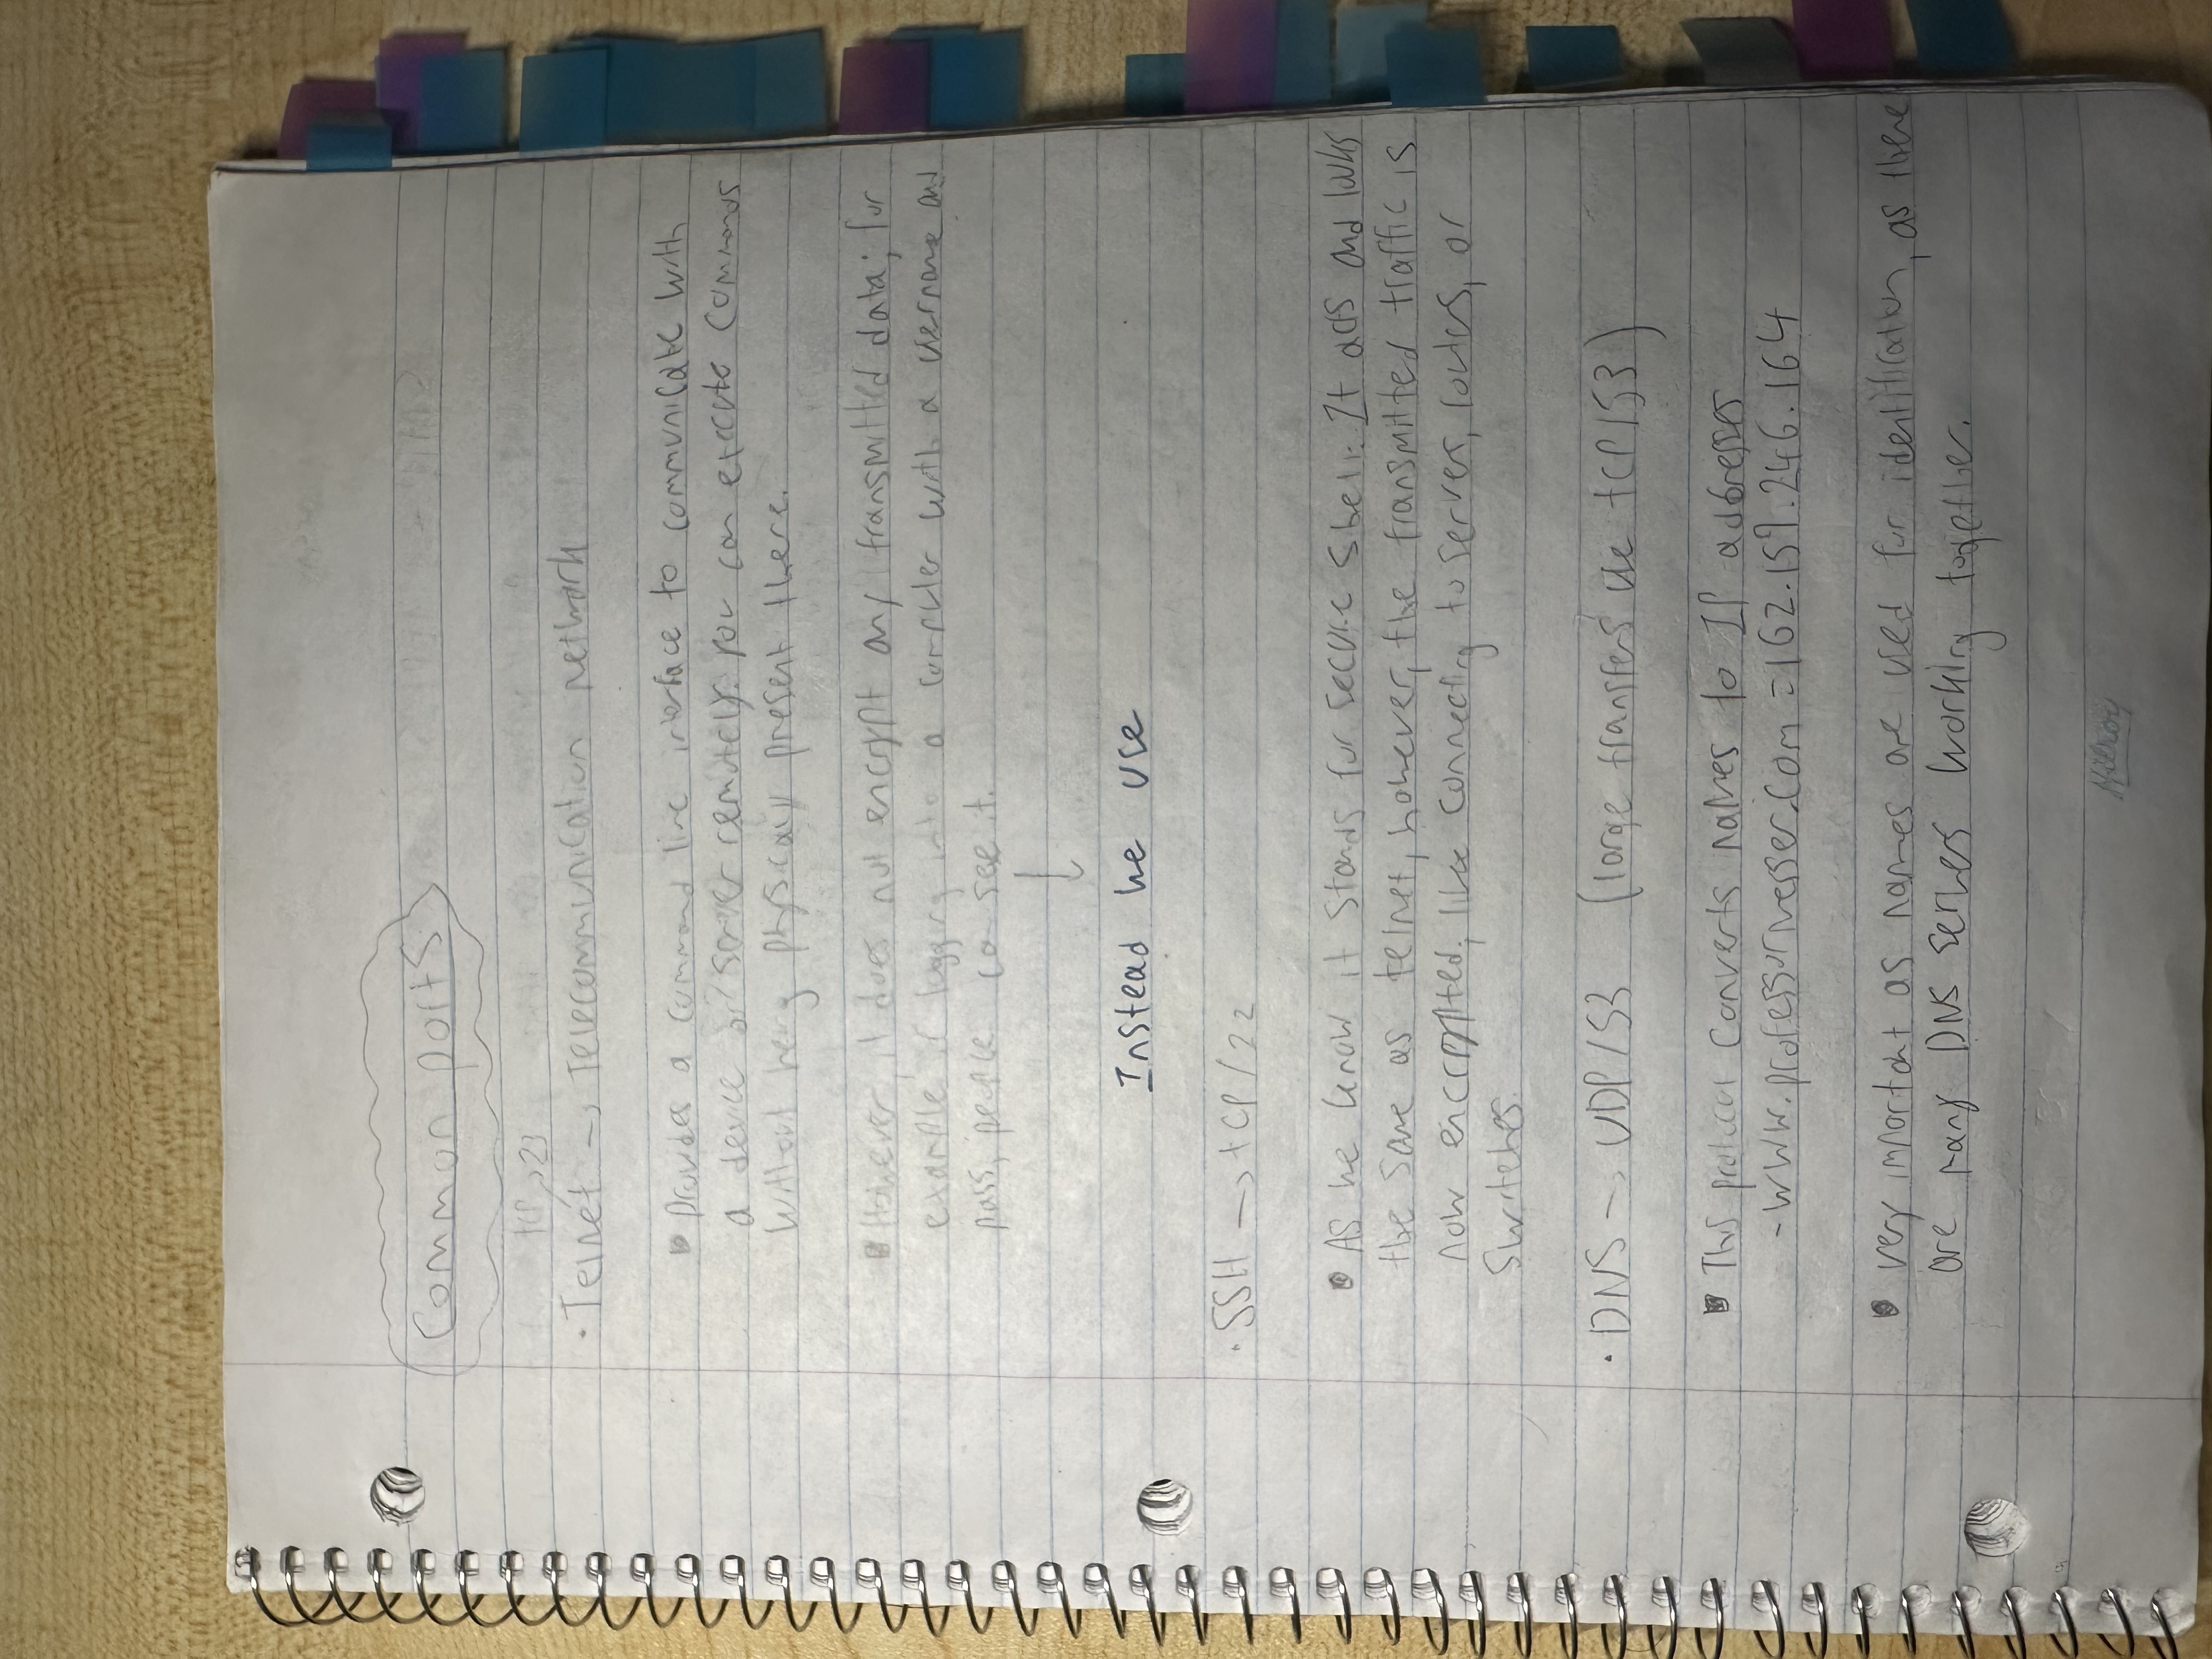 Common ports
tcp 23
· Telnet → Telecommunication network
Provides a command line interface to communicate with
a device or server remotely. You can execute commands
without being physically present there.
However, it does not encrypt any transmitted data; for
example if logging into a computer with a username and
pass, people can see it.
Instead we use
· SSH → tcp/22
As we know it stands for secure shell. It acts and looks
the same as telnet, however, the transmitted traffic is
now encrypted; like connecting to servers, routers, or
switches.
· DNS → UDP/53 (large transfers use tcp/53)
This protocol converts names to IP addresses
-www.professormesser.com = 162.159.246.164
very important as names are used for identification, as there
are many DNS servers working together.